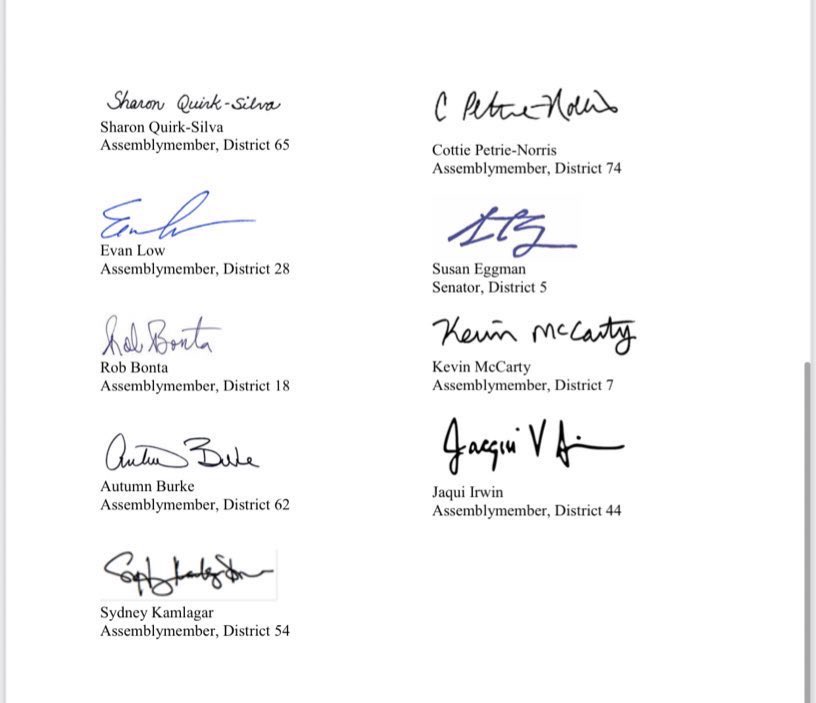 Sharon Quirk-Silva
Sharon Quirk-Silva
Assemblymember, District 65
Evan Low
Assemblymember, District 28
Rob Bonta
Rob Bonta
Assemblymember, District 18
Autumn Burke
Autumn Burke
Assemblymember, District 62
Sydney Kamlagar
Assemblymember, District 54
C Petrie-Norris
Cottie Petrie-Norris
Assemblymember, District 74
Susan Eggman
Senator, District 5
Kevin McCarty
Kevin McCarty
Assemblymember, District 7
Jacqui V
Jaqui Irwin
Assemblymember, District 44